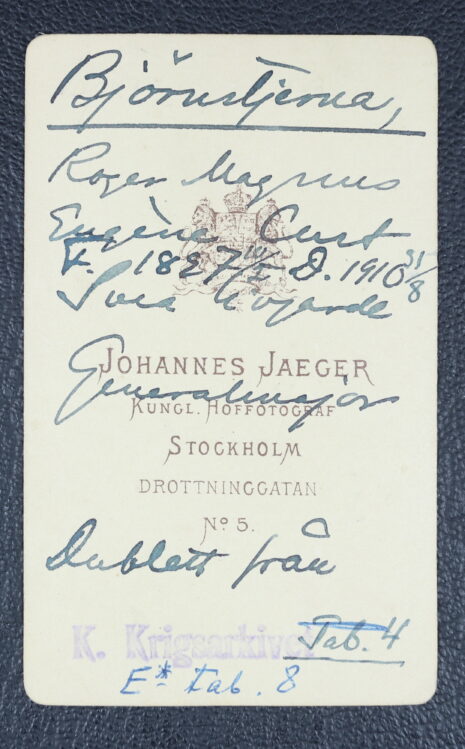 Björnstjerna,
Roger Magnus
Eugène Curt
F. 1827 10/2 D. 1910 31/8
Svea livgarde
JOHANNES JAEGER
Generalmajor
KUNGL. HOFFOTOGRAF
STOCKHOLM
DROTTNINGGATAN
No 5.
Dublett från
K. Krigsarkivet
Tab. 4
E* tab. 8